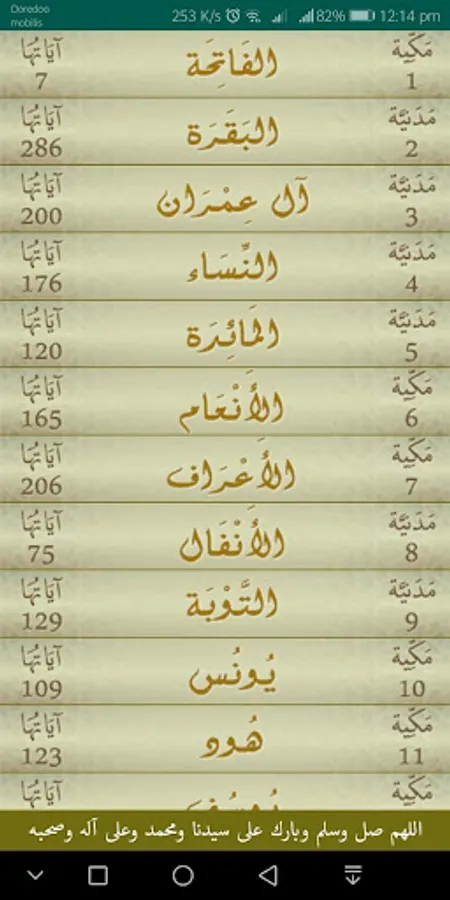 Ooredoo
mobilis
253 K/s 82% 12:14 pm
مَكِّيَة الفَاتِحَة آيَاتُهَا
1 7
مَدَنيَّة البَقَرَة آيَاتُهَا
2 286
مَدَنيَّة آل عِمْرَان آيَاتُهَا
3 200
مَدَنيَّة النِّسَاء آيَاتُهَا
4 176
مَدَنيَّة المَائِدَة آيَاتُهَا
5 120
مَكِّيَة الأَنْعَام آيَاتُهَا
6 165
مَكِّيَة الأَعْرَاف آيَاتُهَا
7 206
مَدَنيَّة الأَنْفَال آيَاتُهَا
8 75
مَدَنيَّة التَّوْبَة آيَاتُهَا
9 129
مَكِّيَة يُونُس آيَاتُهَا
10 109
مَكِّيَة هُود آيَاتُهَا
11 123
مَكِّيَة يُوسُف آيَاتُهَا
اللهم صل وسلم وبارك على سيدنا ومحمد وعلى آله وصحبه